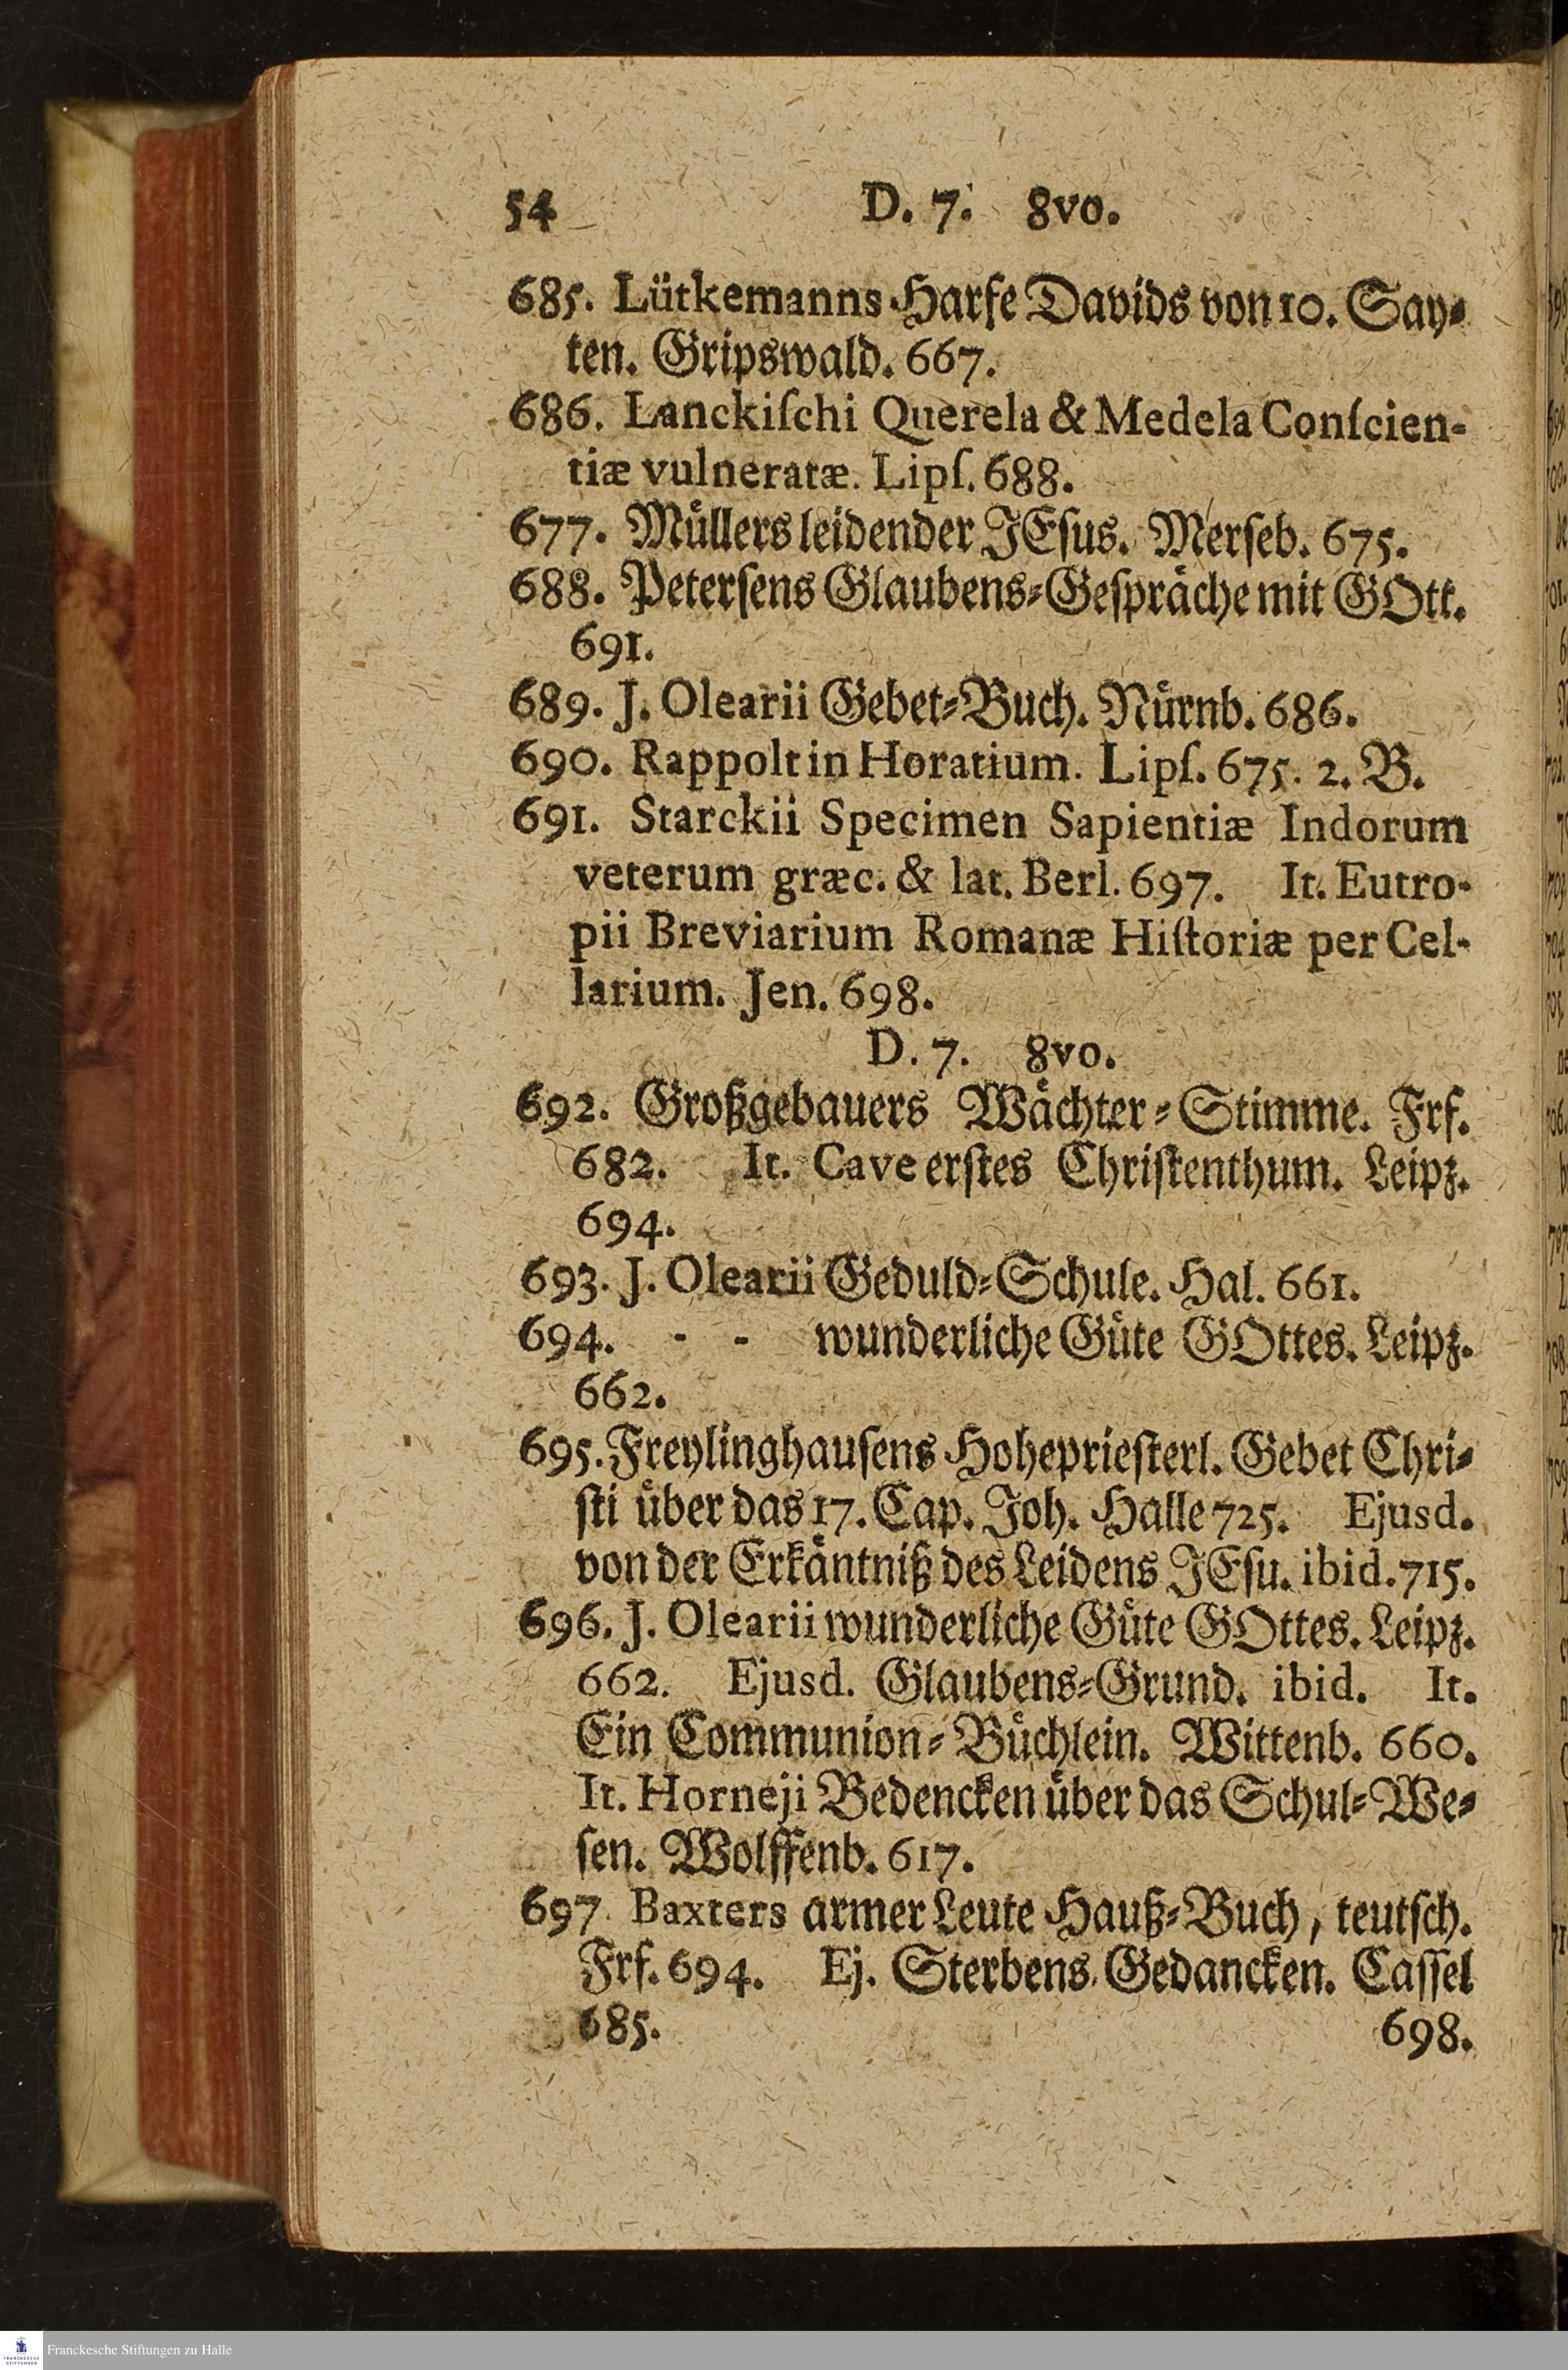 54 D. 7. 8vo.
685. Lütkemanns Harfe Davids von 10. Say⸗
ten. Gripswald. 667.
686. Lanckiſchi Querela & Medela Conſcien-
tiæ vulneratæ. Lipſ. 688.
677. Muͤllers leidender JEſus. Merſeb. 675.
688. Peterſens Glaubens⸗Geſpraͤche mit GOtt.
691.
689. J. Olearii Gebet⸗Buch. Nuͤrnb. 686.
690. Rappolt in Horatium. Lipſ. 675. 2. B.
691. Starckii Specimen Sapientiæ Indorum
veterum græc. & lat. Berl. 697. It. Eutro-
pii Breviarium Romanæ Hiſtoriæ per Cel-
larium. Jen. 698.
D. 7. 8vo.
692. Großgebauers Waͤchter⸗Stimme. Frf.
682. It. Cave erſtes Chriſtenthum. Leipz.
694.
693. J. Olearii Geduld⸗Schule. Hal. 661.
694. - - wunderliche Guͤte GOttes. Leipz.
662.
695. Freylinghauſens Hoheprieſterl. Gebet Chri⸗
ſti uͤber das 17. Cap. Joh. Halle 725. Ejusd.
von der Erkaͤntniß des Leidens JEſu. ibid. 715.
696. J. Olearii wunderliche Guͤte GOttes. Leipz.
662. Ejusd. Glaubens⸗Grund. ibid. It.
Ein Communion⸗Buͤchlein. Wittenb. 660.
It. Horneji Bedencken uͤber das Schul⸗We⸗
ſen. Wolffenb. 617.
697. Baxters armer Leute Hauß⸗Buch, teutſch.
Frf. 694. Ej. Sterbens Gedancken. Caſſel
685. 698.
Franckesche Stiftungen zu Halle